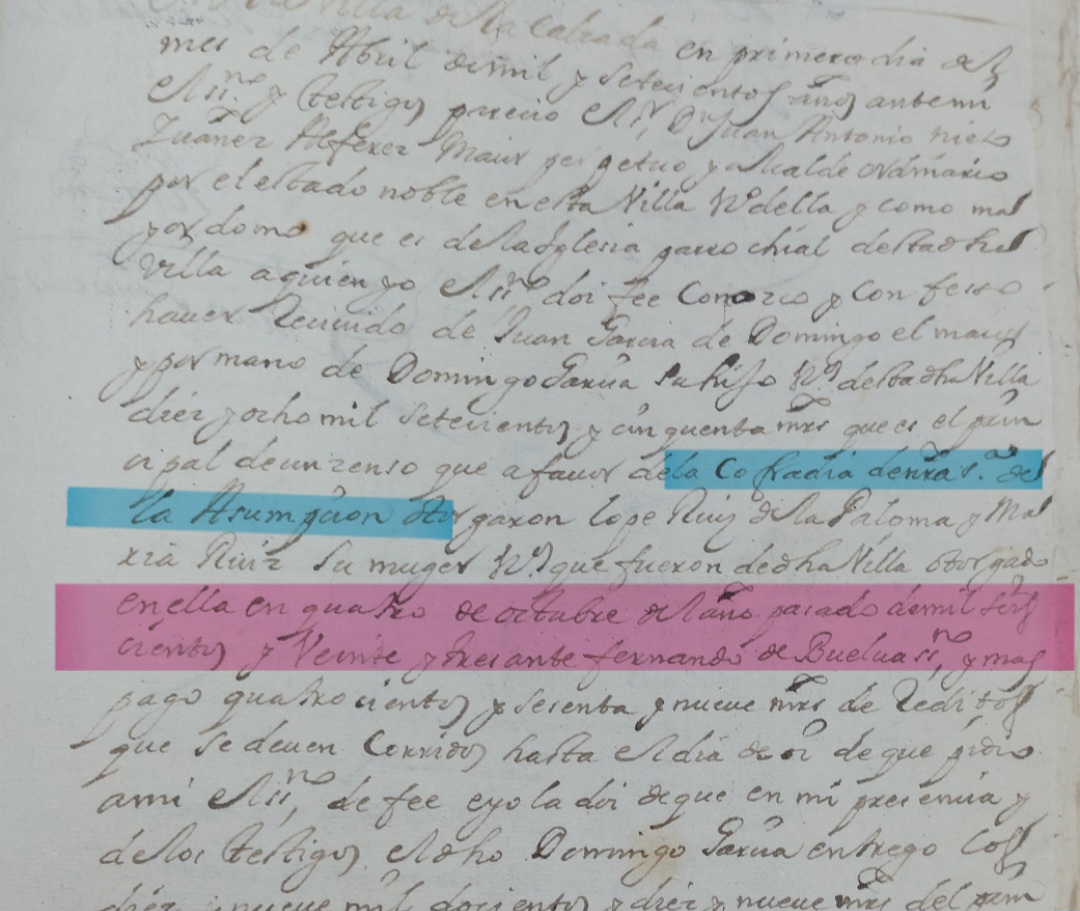 En la Villa de la Calzada en primero dia del
mes de Abril de mil y setecientos añoſ ante mi
el ssno y testigos parecio el sr Dn Juan Antonio nieto
Yuañez Alferez Maior perpetuo y alcalde ordinario
por el estado noble en esta Villa vº della y como mal
yordomo que es de la Iglesia parrochial desta dha
villa a quien yo el ssno doi fee Conozco y Confesso
hauer Reciuido de Juan Garcia de Domingo el maior
y por mano de Domingo Garcia su hijo vº desta dha Villa
diez y ocho mil setecientos y cinquenta mrs que es el prin
cipal de un zenso que a fauor dela Cofradia de nra s.ª de
la Asumpcion otorgaron lope Ruiz de la Paloma y Ma
ria Ruiz su muger vºs que fueron de dha Villa otorgado
en ella en quatro de octubre del año pasado de mil seis
cientos y Veinte y tres ante fernando de Buelua ssno, y mas
pago quatrocientos y sesenta y nueve mrs de Reditos
que se deuen Corridos hasta el dia de oi de que pidio
a mi el ssno, de fee e yo la doi de que en mi presencia y
de los testigos el dho Domingo Garcia entrego los
diez y nueve mil docientos y diez y nueve mrs del prin